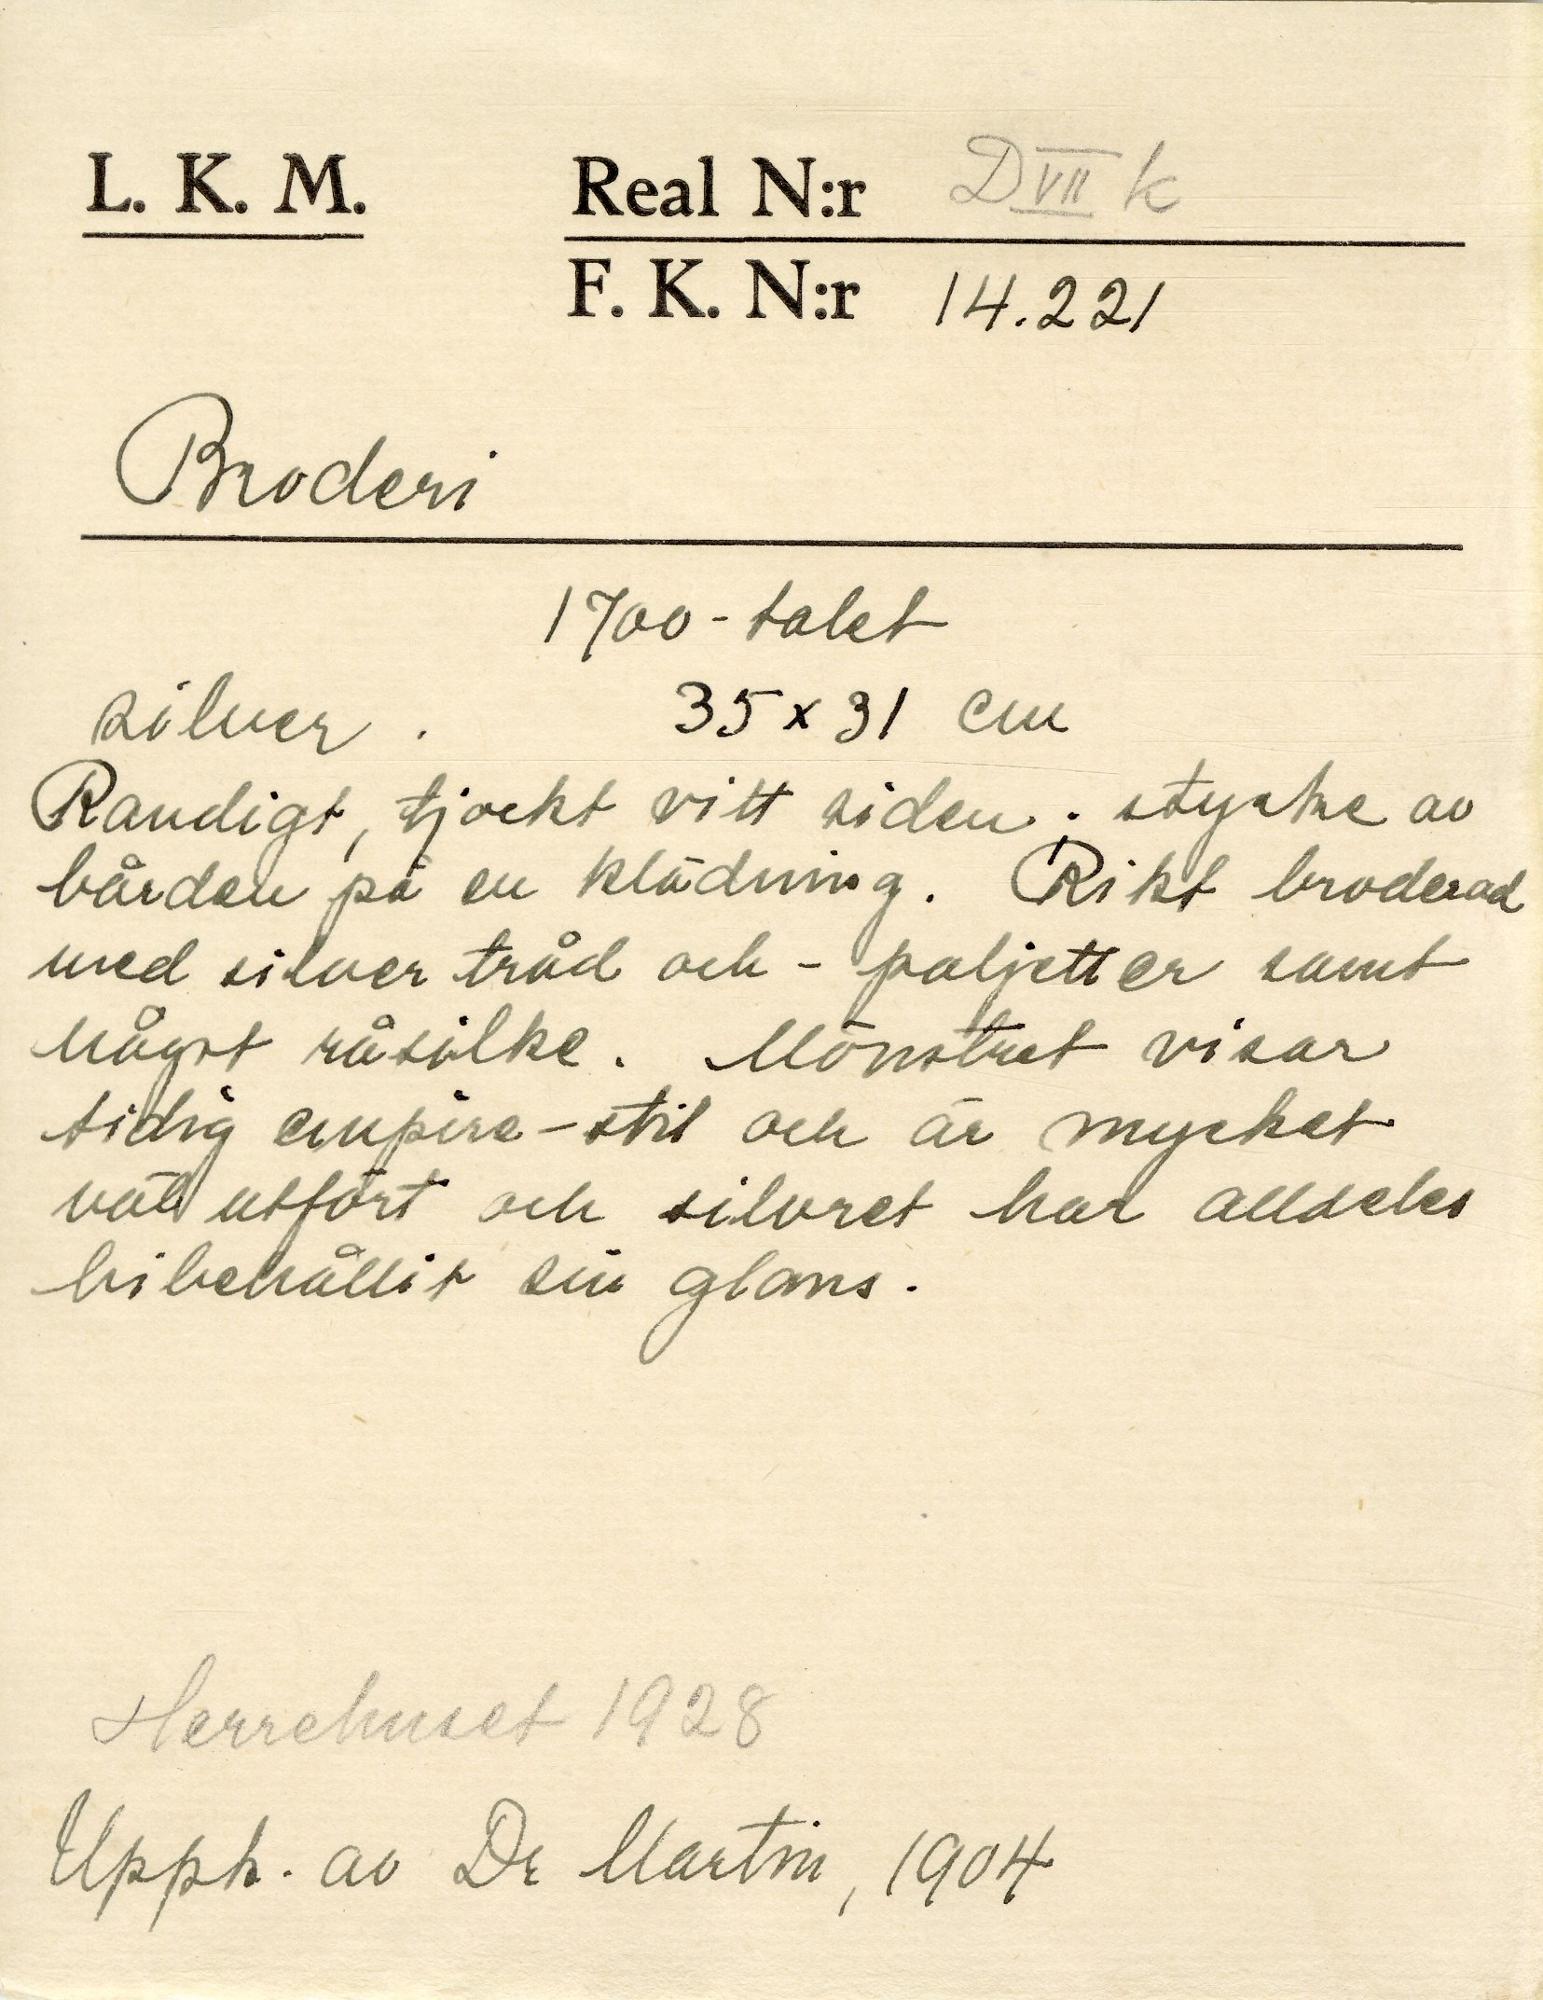 L. K. M. Real N:r D VII k
F. K. N:r 14.221
Broderi
1700-talet
silver. 35 x 31 cm
Randigt, tjockt vitt siden; stycke av
bården på en klädning. Rikt broderad
med silver tråd och - paljetter samt
något råsilke. Mönstret visar
tidig empire-stil och är mycket
väl utfört och silvret har alldeles
bibehållit sin glans.
Herrehuset 1928
Upph. av Dr Martin, 1904